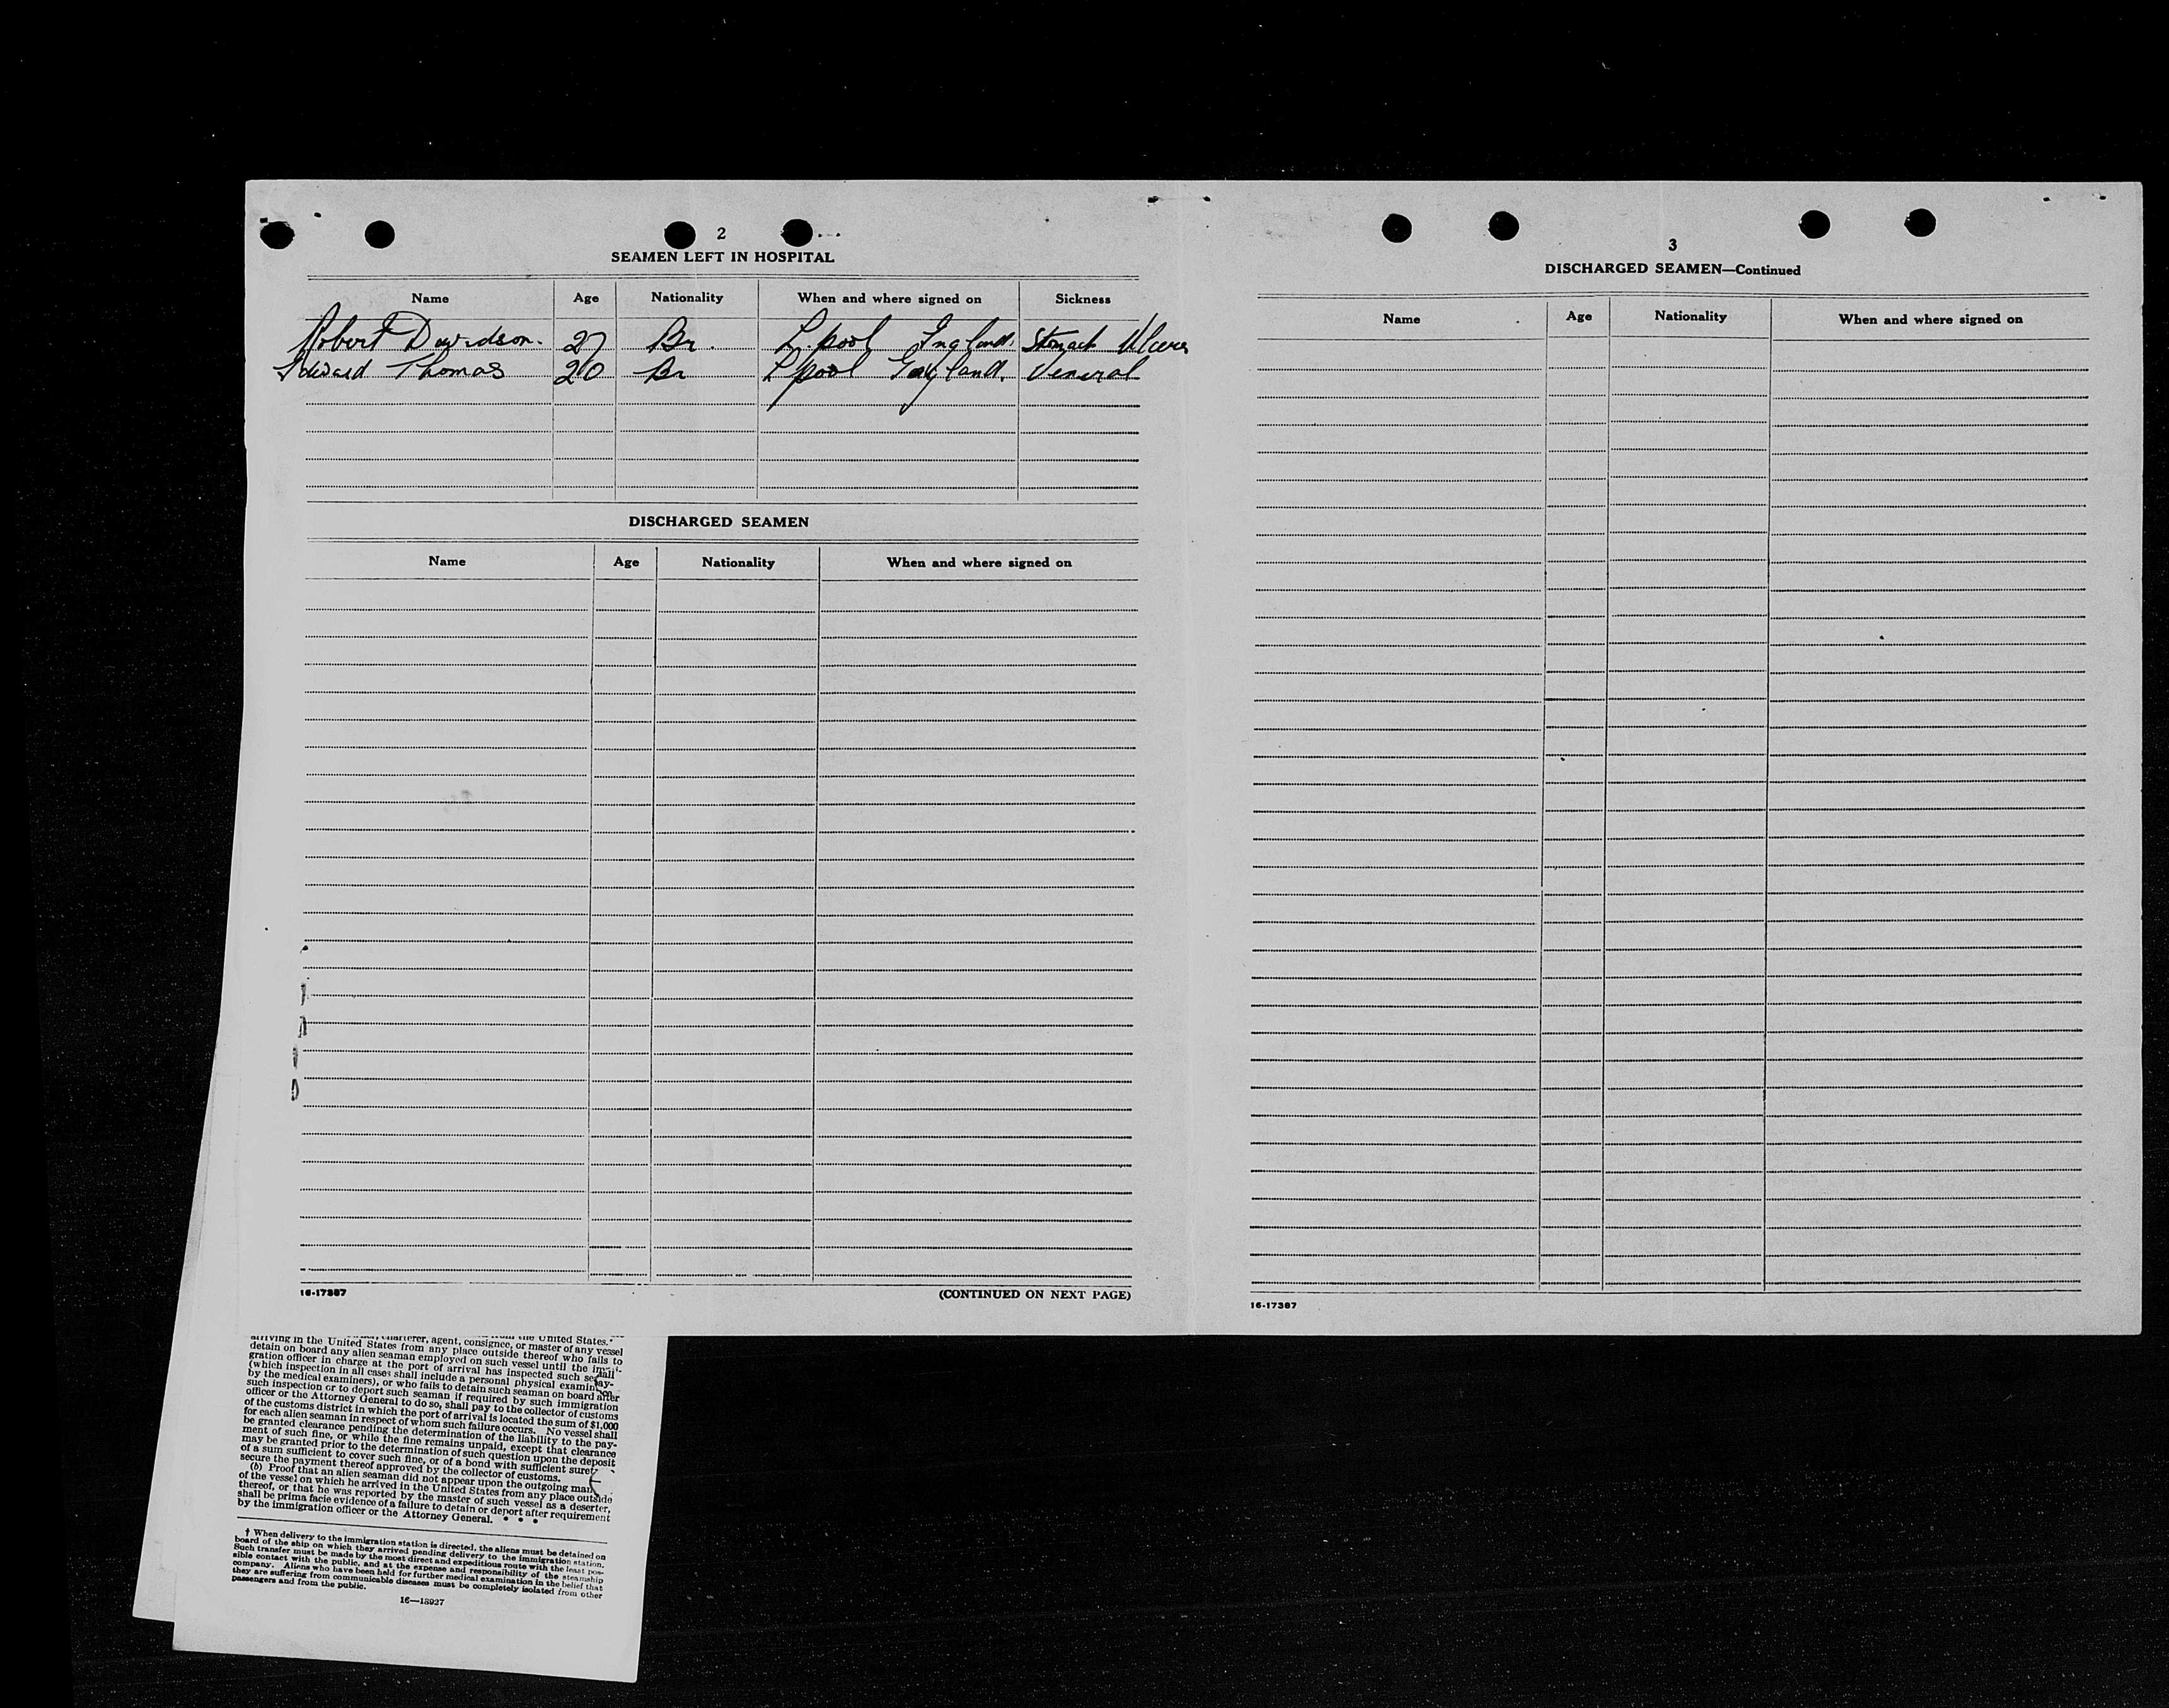 2
SEAMEN LEFT IN HOSPITAL
Name Age Nationality When and where signed on Sickness
Robert Davidson. 27 Br. L.pool England. Stomach Ulcers
Edward Thomas 20 Br L'pool England. Veneral
DISCHARGED SEAMEN
Name Age Nationality When and where signed on
16-17387
(CONTINUED ON NEXT PAGE)
3
DISCHARGED SEAMEN—Continued
Name Age Nationality When and where signed on
16-17387
arriving in the United States from any place outside thereof who fails to
detain on board any alien seaman employed on such vessel until the immi-
gration officer in charge at the port of arrival has inspected such
(which inspection in all cases shall include a personal physical
by the medical examiners), or who fails to detain such seaman on board after
such inspection or to deport such seaman if required by such immigration
officer or the Attorney General to do so, shall pay to the collector of customs
of the customs district in which the port of arrival is located the sum of $1,000
for each alien seaman in respect of whom such failure occurs. No vessel shall
be granted clearance pending the determination of the liability to the pay-
ment of such fine, or while the fine remains unpaid, except that clearance
may be granted prior to the determination of such question upon the deposit
of a sum sufficient to cover such fine, or of a bond with sufficient surety
secure the payment thereof approved by the collector of customs.
(b) Proof that an alien seaman did not appear upon the outgoing
of the vessel on which he arrived in the United States from any place outside
thereof, or that he was reported by the master of such vessel as a deserter,
shall be prima facie evidence of a failure to detain or deport after requirement
by the immigration officer or the Attorney General. * * *
† When delivery to the immigration station is directed, the aliens must be detained on
board of the ship on which they arrived pending delivery to the immigration station.
Such transfer must be made by the most direct and expeditious route with the least pos-
sible contact with the public, and at the expense and responsibility of the steamship
company. Aliens who have been held for further medical examination in the belief that
they are suffering from communicable diseases must be completely isolated from other
passengers and from the public.
16—18927